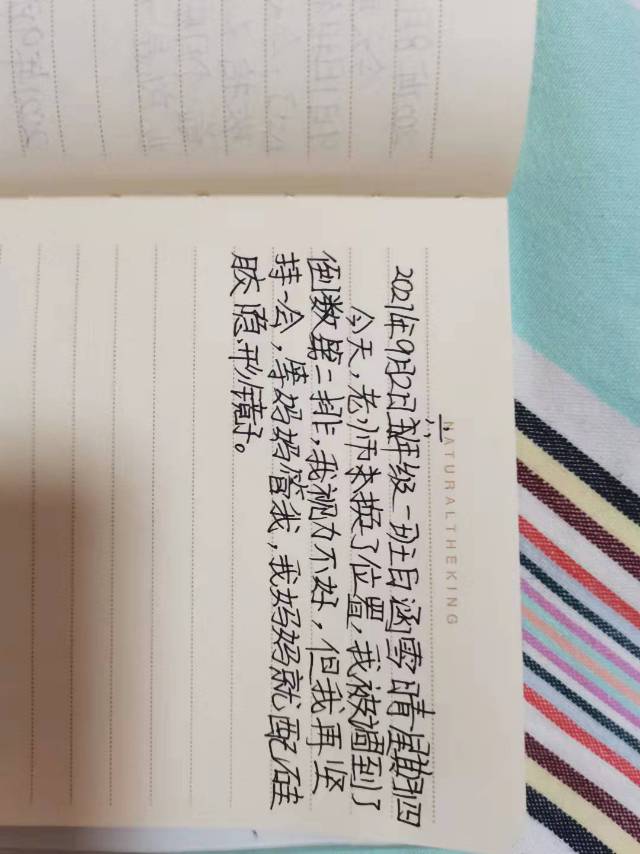 NATURALTHEKING
2021年9月2日 三年级一班白涵雪 晴 星期四
今天，老师来换了位置，我被调到了
倒数第二排，我视力不好，但我再坚
持一会，等妈妈管我，我妈妈就配硅
胶隐形镜子。